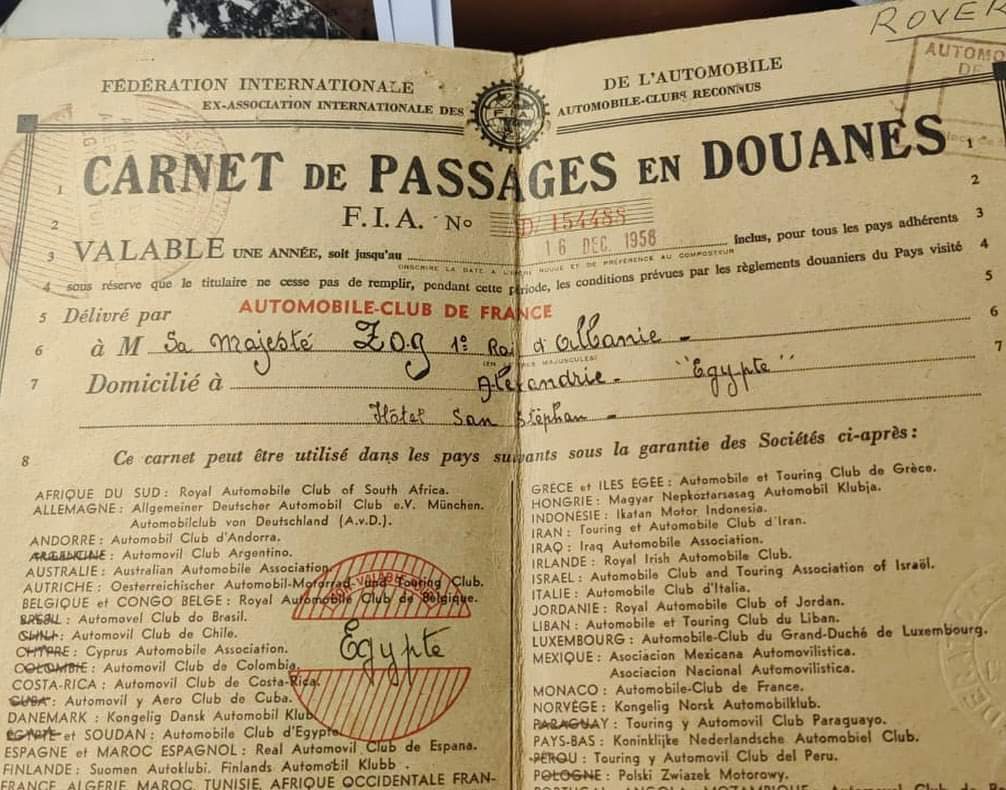 ROVER
AUTOMO
DE
FÉDÉRATION INTERNATIONALE DE L'AUTOMOBILE
EX-ASSOCIATION INTERNATIONALE DES AUTOMOBILE-CLUBS RECONNUS
F.I.A.
1 CARNET DE PASSAGES EN DOUANES 1
2 F.I.A. No D 154488 2
16 DEC. 1956
3 VALABLE UNE ANNÉE, soit jusqu'au inclus, pour tous les pays adhérents 3
(INSCRIRE LA DATE A L'ENCRE ROUGE ET DE PRÉFÉRENCE AU COMPOSTEUR
4 sous réserve que le titulaire ne cesse pas de remplir, pendant cette période, les conditions prévues par les règlements douaniers du Pays visité 4
5 Délivré par AUTOMOBILE-CLUB DE FRANCE 5
6 à M Sa Majesté Zog 1º Roi d'Albanie - 6
(EN LETTRES MAJUSCULES)
7 Domicilié à Alexandrie - "Egypte" 7
Hôtel San Stéphan -
8 Ce carnet peut être utilisé dans les pays suivants sous la garantie des Sociétés ci-après :
AFRIQUE DU SUD : Royal Automobile Club of South Africa.
ALLEMAGNE : Allgemeiner Deutscher Automobil Club e.V. München.
Automobilclub von Deutschland (A.v.D.).
ANDORRE : Automobil Club d'Andorra.
ARGENTINE : Automovil Club Argentino.
AUSTRALIE : Australian Automobile Association.
AUTRICHE : Oesterreichischer Automobil-Motorrad- und Touring Club.
BELGIQUE et CONGO BELGE : Royal Automobile Club de Belgique.
BRÉSIL : Automovel Club do Brasil.
CHILI : Automovil Club de Chile.
CHYPRE : Cyprus Automobile Association.
COLOMBIE : Automovil Club de Colombia.
COSTA-RICA : Automovil Club de Costa-Rica.
CUBA : Automovil y Aero Club de Cuba.
DANEMARK : Kongelig Dansk Automobil Klub.
EGYPTE et SOUDAN : Automobile Club d'Egypte.
ESPAGNE et MAROC ESPAGNOL : Real Automovil Club de Espana.
FINLANDE : Suomen Autoklubi. Finlands Automobil Klubb.
FRANCE, ALGERIE, MAROC, TUNISIE, AFRIQUE OCCIDENTALE FRAN-
Egypte
GRÈCE et ILES ÉGÉE : Automobile et Touring Club de Grèce.
HONGRIE : Magyar Nepköztarsasag Automobil Klubja.
INDONÉSIE : Ikatan Motor Indonesia.
IRAN : Touring et Automobile Club d'Iran.
IRAQ : Iraq Automobile Association.
IRLANDE : Royal Irish Automobile Club.
ISRAEL : Automobile Club and Touring Association of Israël.
ITALIE : Automobile Club d'Italia.
JORDANIE : Royal Automobile Club of Jordan.
LIBAN : Automobile et Touring Club du Liban.
LUXEMBOURG : Automobile-Club du Grand-Duché de Luxembourg.
MEXIQUE : Asociacion Mexicana Automovilistica.
Asociacion Nacional Automovilistica.
MONACO : Automobile-Club de France.
NORVÈGE : Kongelig Norsk Automobilklub.
PARAGUAY : Touring y Automovil Club Paraguayo.
PAYS-BAS : Koninklijke Nederlandsche Automobiel Club.
PÉROU : Touring y Automovil Club del Peru.
POLOGNE : Polski Zwiazek Motorowy.